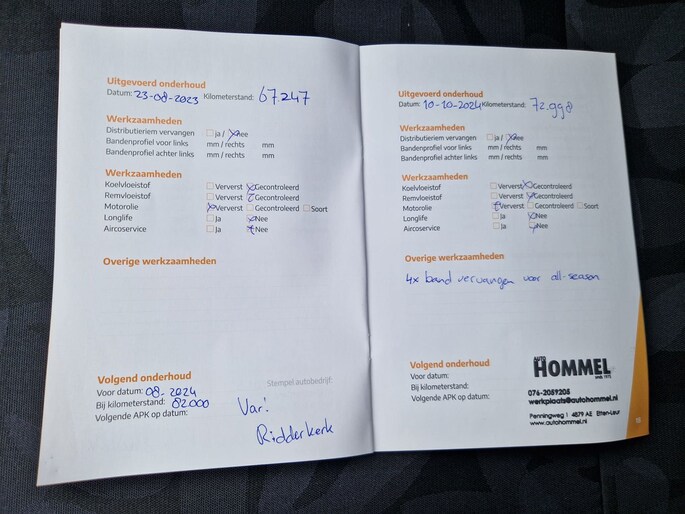 Uitgevoerd onderhoud
Datum: 23-08-2023 Kilometerstand: 67.247
Werkzaamheden
Distributieriem vervangen ja / nee
Bandenprofiel voor links mm / rechts mm
Bandenprofiel achter links mm / rechts mm
Werkzaamheden
Koelvloeistof Ververst Gecontroleerd
Remvloeistof Ververst Gecontroleerd
Motorolie Ververst Gecontroleerd Soort
Longlife Ja Nee
Aircoservice Ja Nee
Overige werkzaamheden
Volgend onderhoud
Stempel autobedrijf:
Voor datum: 08-2024
Bij kilometerstand: 82.000
Volgende APK op datum:
Var!
Ridderkerk
Uitgevoerd onderhoud
Datum: 10-10-2024 Kilometerstand: 72.998
Werkzaamheden
Distributieriem vervangen ja / nee
Bandenprofiel voor links mm / rechts mm
Bandenprofiel achter links mm / rechts mm
Werkzaamheden
Koelvloeistof Ververst Gecontroleerd
Remvloeistof Ververst Gecontroleerd
Motorolie Ververst Gecontroleerd Soort
Longlife Ja Nee
Aircoservice Ja Nee
Overige werkzaamheden
4x band vervangen voor all-season
Volgend onderhoud
Voor datum:
Bij kilometerstand:
Volgende APK op datum:
AUTO
HOMMEL
sinds 1975
076-2059205
werkplaats@autohommel.nl
Penningweg 1 4879 AE Etten-Leur
www.autohommel.nl